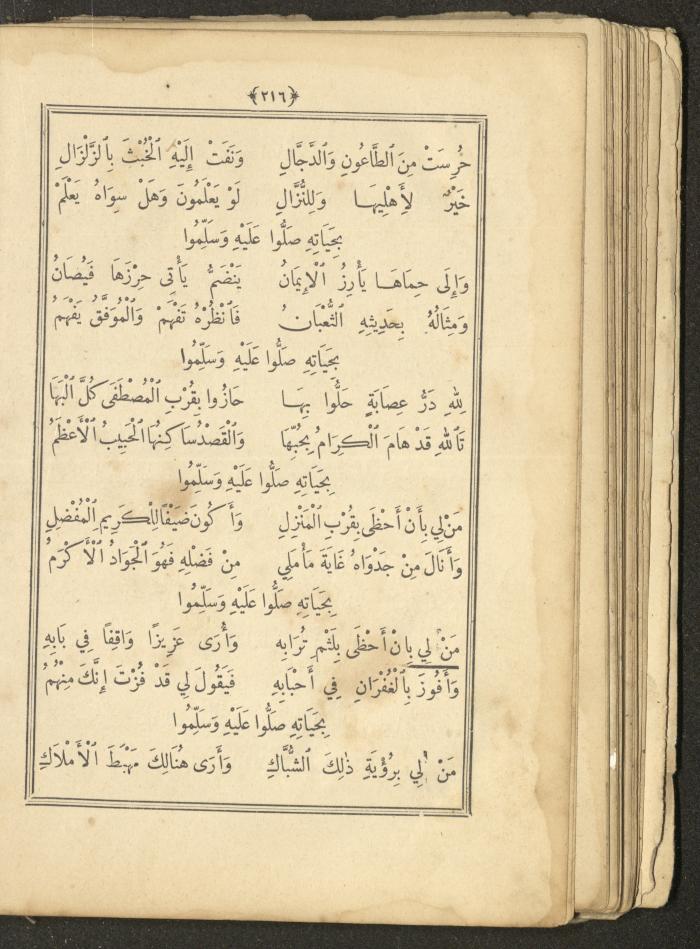 ﴿٢١٦﴾
حُرِسَتْ مِنَ ٱلطَّاعُونِ وَٱلدَّجَّالِ وَنَفَتْ إِلَيْهِ ٱلْخُبْثَ بِٱلزَّلْزَالِ
خَيْرٌ لِأَهْلِيهَا وَلِلنُّزَّالِ لَوْ يَعْلَمُونَ وَهَلْ سِوَاهُ يَعْلَمُ
بِحَيَاتِهِ صَلُّوا عَلَيْهِ وَسَلِّمُوا
وَإِلَى حِمَاهَا يَأْرِزُ ٱلْإِيمَانُ يَنْضَمُّ يَأْتِي حِرْزَهَا فَيُصَانُ
وَمِثَالُهُ بِحَدِيثِهِ ٱلثُّعْبَانُ فَٱنْظُرْهُ تَفْهَمْ وَٱلْمُوَفَّقُ يَفْهَمُ
بِحَيَاتِهِ صَلُّوا عَلَيْهِ وَسَلِّمُوا
لِلهِ دَرُّ عِصَابَةٍ حَلُّوا بِهَا حَازُوا بِقُرْبِ ٱلْمُصْطَفَى كُلَّ ٱلْبَهَا
تَٱللهِ قَدْ هَامَ ٱلْكِرَامُ بِحُبِّهَا وَٱلْقَصْدُ سَاكِنُهَا ٱلْحَبِيبُ ٱلْأَعْظَمُ
بِحَيَاتِهِ صَلُّوا عَلَيْهِ وَسَلِّمُوا
مَنْ لِي بِأَنْ أَحْظَى بِقُرْبِ ٱلْمَنْزِلِ وَأَكُونَ ضَيْفًا لِلْكَرِيمِ ٱلْمُفْضِلِ
وَأَنَالَ مِنْ جَدْوَاهُ غَايَةَ مَأْمَلِي مِنْ فَضْلِهِ فَهُوَ ٱلْجَوَادُ ٱلْأَكْرَمُ
بِحَيَاتِهِ صَلُّوا عَلَيْهِ وَسَلِّمُوا
مَنْ لِي بِانْ أَحْظَى بِلَثْمِ تُرَابِهِ وَأُرَى عَزِيزًا وَاقِفًا فِي بَابِهِ
وَأَفُوزَ بِٱلْغُفْرَانِ فِي أَحْبَابِهِ فَيَقُولَ لِي قَدْ فُزْتَ إِنَّكَ مِنْهُمُ
بِحَيَاتِهِ صَلُّوا عَلَيْهِ وَسَلِّمُوا
مَنْ لِي بِرُؤْيَةِ ذٰلِكَ ٱلشُّبَّاكِ وَأَرَى هُنَالِكَ مَهْبَطَ ٱلْأَمْلَاكِ